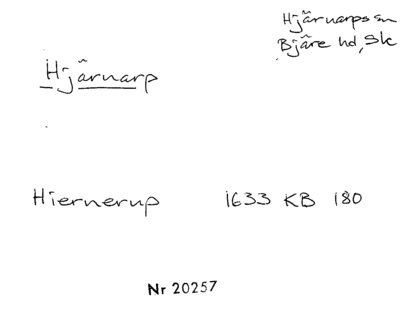 Hjärnarps sn
Bjäre hd, Sk
Hjärnarp
Hiernerup 1633 KB 180
Nr 20257